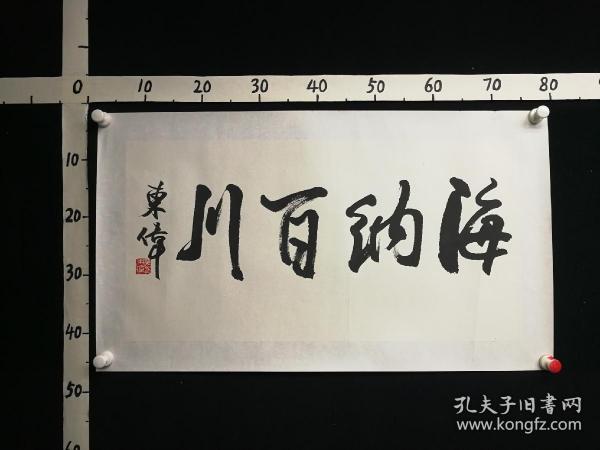 0 10 20 30 40 50 60 70 80
10
20
30
40
50
海納百川
東偉
孔夫子旧書网
www.kongfz.com